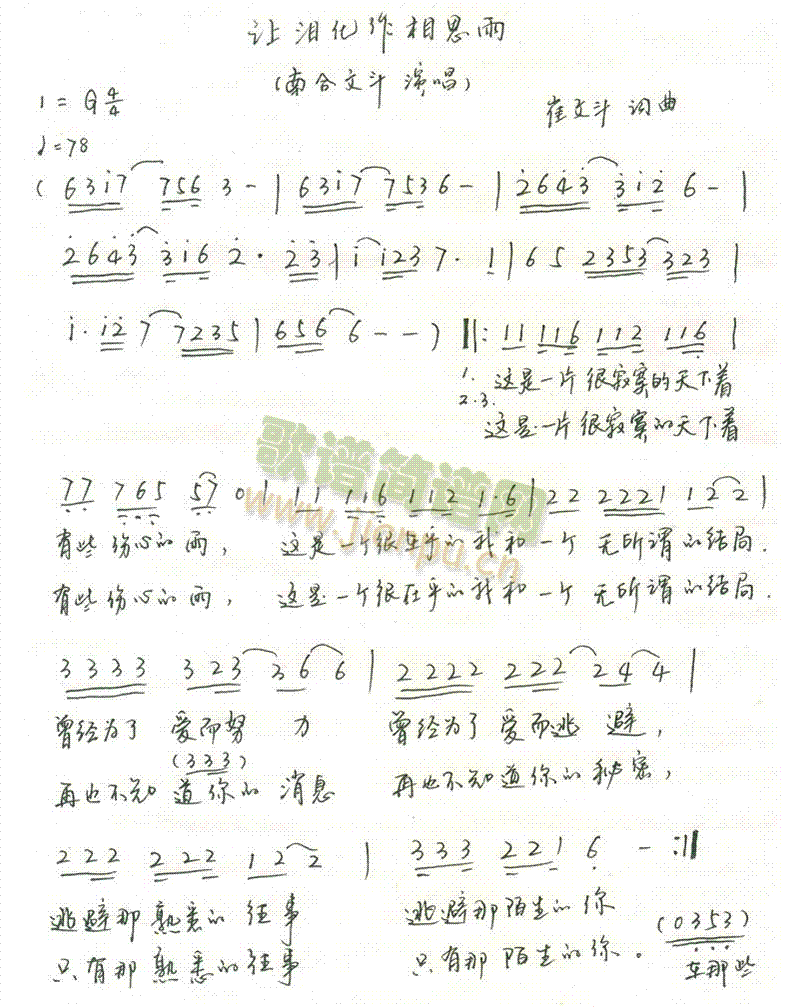 让泪化作相思雨
(南合文斗 演唱)
1=G 4/4
崔文斗 词曲
♩=78
( 6 3 i 7 7 5 6 3 - | 6 3 i 7 7 5 3 6 - | 2 6 4 3 3 i 2 6 - |
2 6 4 3 3 i 6 2 · 2 3 | i i 2 3 7 · 1 | 6 5 2 3 5 3 3 2 3 |
i · i 2 7 7 2 3 5 | 6 5 6 6 - - ) ‖: 1 1 1 1 6 1 1 2 1 1 6 |
1. 这是一片很寂寞的天下着
2.3. 这是一片很寂寞的天下着
7 7 7 6 5 5 7 0 | 1 1 1 1 6 1 1 2 1 · 6 | 2 2 2 2 2 1 1 2 2 |
歌谱简谱网
www.jianpu.cn
有些伤心的雨, 这是一个很在乎的我和一个 无所谓的结局.
有些伤心的雨, 这是一个很在乎的我和一个 无所谓的结局.
3 3 3 3 3 2 3 3 6 6 | 2 2 2 2 2 2 2 2 4 4 |
曾经为了 爱而努 力 曾经为了爱而逃 避,
(3 3 3)
再也不知 道你的 消息 再也不知道你的秘密,
2 2 2 2 2 2 1 2 2 | 3 3 3 2 2 1 6 - :‖
逃避那熟悉的往事 逃避那陌生的你
(0 3 5 3)
只有那熟悉的往事 只有那陌生的你. 在那些